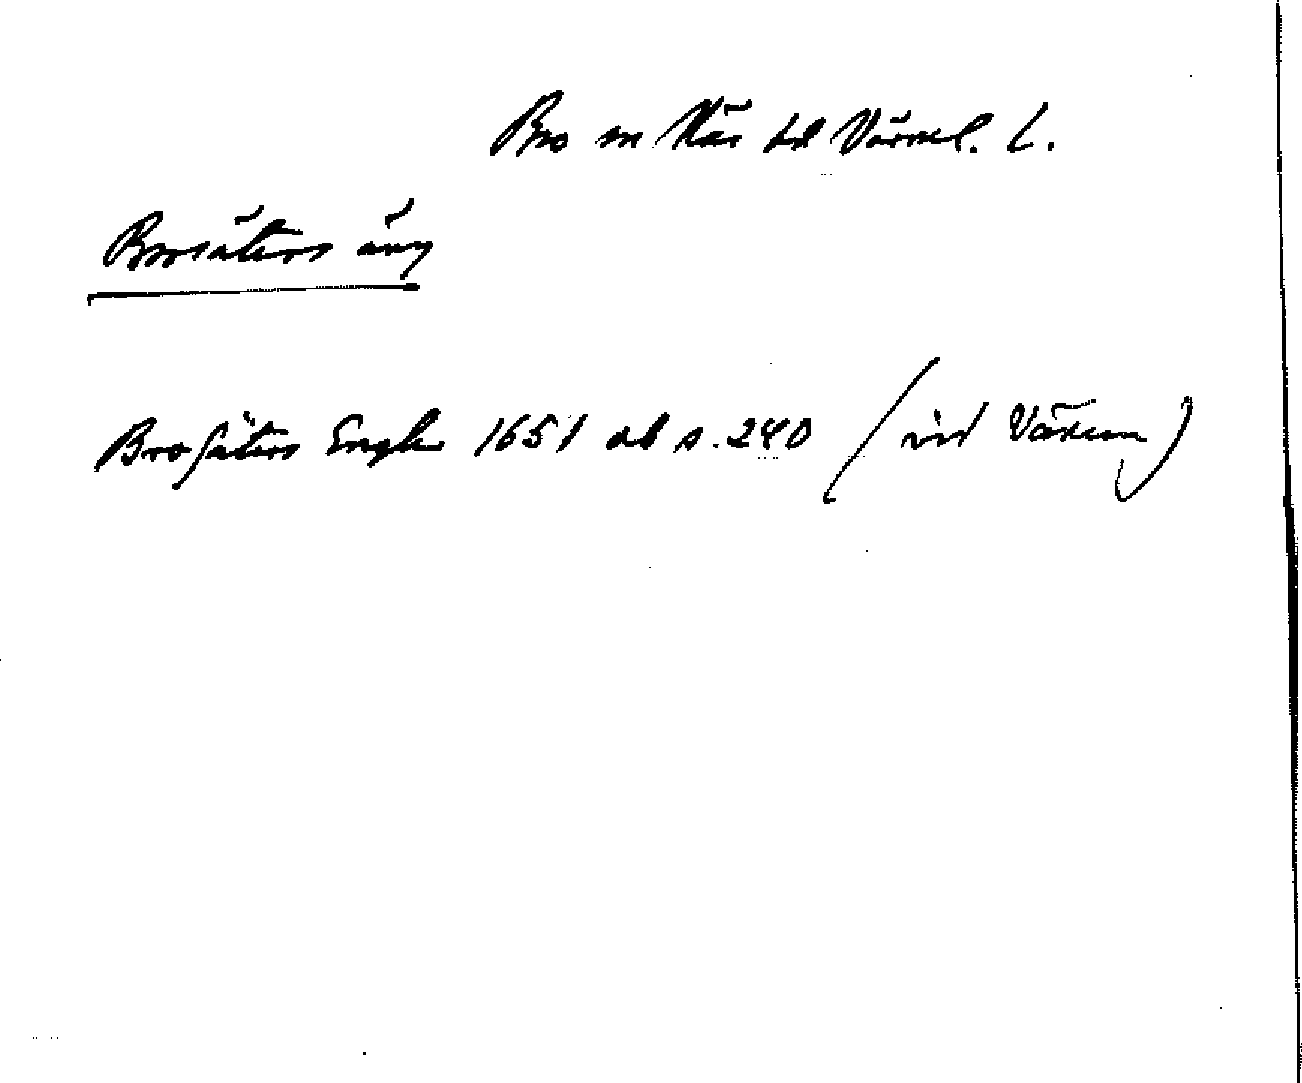 Bro sn Näs hd Värml. l.
Brosäters äng
Bro säters Engh 1651 db s. 240 (vid Växem)